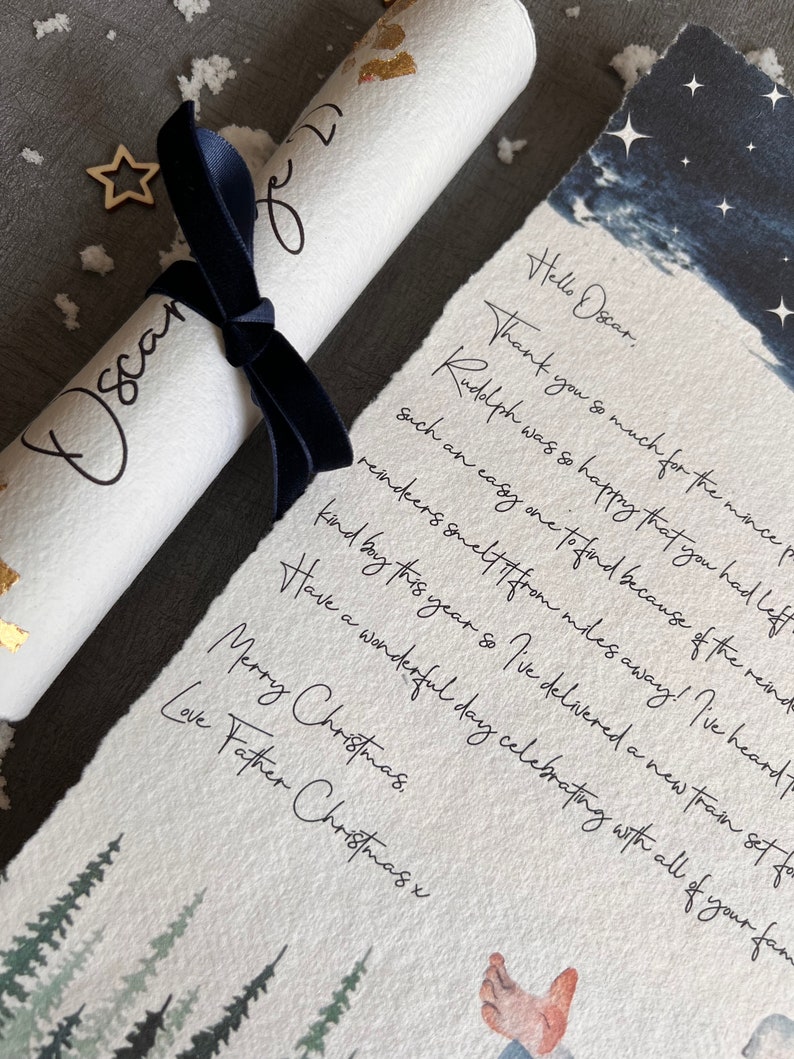 Oscar
Hello Oscar,
Thank you so much for the mince
Rudolph was so happy that you had left
such an easy one to find because of the reindeer
reindeers smelt it from miles away! I've heard
kind boy this year so I've delivered a new train set for
Have a wonderful day celebrating with all of your
Merry Christmas,
Love Father Christmas x